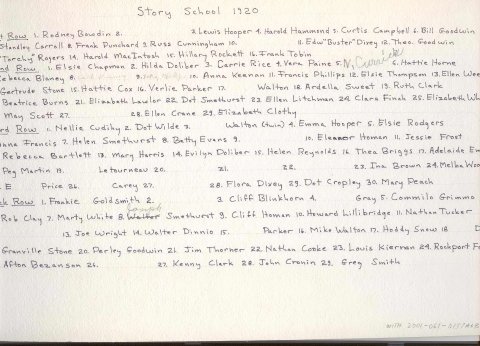 Story School 1920
t Row. 1. Rodney Bowdin 2. 3. Lewis Hooper 4. Harold Hammond 5. Curtis Campbell 6. Bill Goodwin
Standley Carroll 8. Frank Punchard 9. Russ Cunningham 10. 11. Edw "Buster" Dixey 12. Theo. Goodwin
"Torchy" Rogers 14. Harold MacIntosh 15. Hillary Rockett 16. Frank Tobin
nd Row. 1. Elsie Chapman 2. Hilda Doliber 3. Carrie Rice 4. Vera Paine 5. 6. Hattie Horne
Rebecca Blaney 8. 9. 10. Anna Keenan 11. Francis Phillips 12. Elsie Thompson 13. Ellen
Gertrude Stone 15. Hattie Cox 16. Verlie Parker 17. Walton 18. Ardella Sweet 19. Ruth Clark
Beatrice Burns 21. Elizabeth Lawlor 22. Dot Smethurst 23. Ellen Litchman 24. Clara Finch 25. Elizabeth
May Scott 27. 28. Ellen Crane 29. Elizabeth Clothy
rd Row. 1. Nellie Cudihy 2. Dot Wilde 3. Walton (twin) 4. Emma Hooper 5. Elsie Rodgers
Francis 7. Helen Smethurst 8. Betty Evans 9. 10. Eleanor Homan 11. Jessie Frost
Rebecca Bartlett 13. Mary Harris 14. Evilyn Doliber 15. Helen Reynolds 16. Thea Briggs 17. Adelaide
Peg Martin 19. Letourneau 20. 21. 22. 23. Ina Brown 24. Melba
E Price 26. Carey 27. 28. Flora Dixey 29. Dot Cropley 30. Mary Peach
ck Row 1. Frankie Goldsmith 2. 3. Cliff Blinkhorn 4. Gray 5. Commilo Grimmo
Rob Clay 7. Marty White 8. Walter Smethurst 9. Cliff Homan 10. Howard Lillibridge 11. Nathan Tucker
13. Joe Wright 14. Walter Dinnio 15. Parker 16. Mike Walton 17. Hoddy Snow 18.
Granville Stone 20. Perley Goodwin 21. Jim Thorner 22. Nathan Cooke 23. Louis Kiernan 24. Rockport
Afton Bezanson 26. 27. Kenny Clark 28. John Cronin 29. Greg Smith